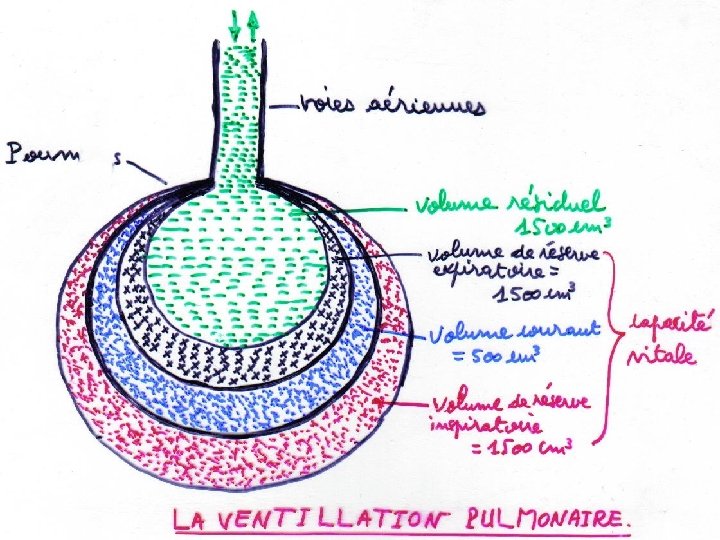 voies aériennes
Poum s
volume résiduel
1500 cm³
volume de réserve
expiratoire =
1500 cm³
Volume courant
= 500 cm³
capacité
vitale
Volume de réserve
inspiratoire
= 1500 cm³
LA VENTILLATION PULMONAIRE.